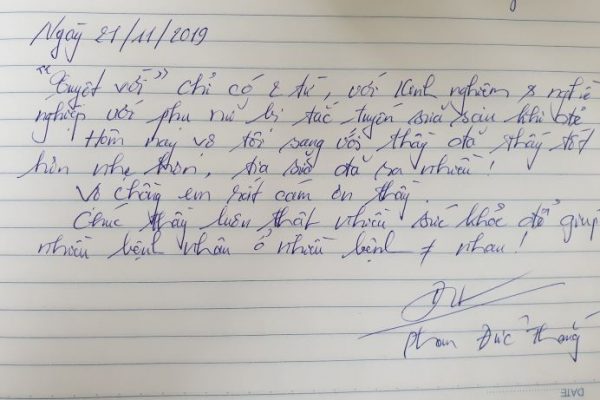 Ngày 21/11/2019
"Tuyệt vời" chỉ có 2 từ, với kinh nghiệm & nghề
nghiệp với phụ nữ bị tắc tuyến sữa sau khi đẻ
Hôm nay vợ tôi sang với thầy đã thấy tốt
hơn nhẹ hơn, tia sữa đã ra nhiều!
Vợ chồng em rất cám ơn thầy.
Chúc thầy luôn thật nhiều sức khỏe để giúp
nhiều bệnh nhân ở nhiều bệnh ≠ nhau!
Phan Đức Thắng
DATE